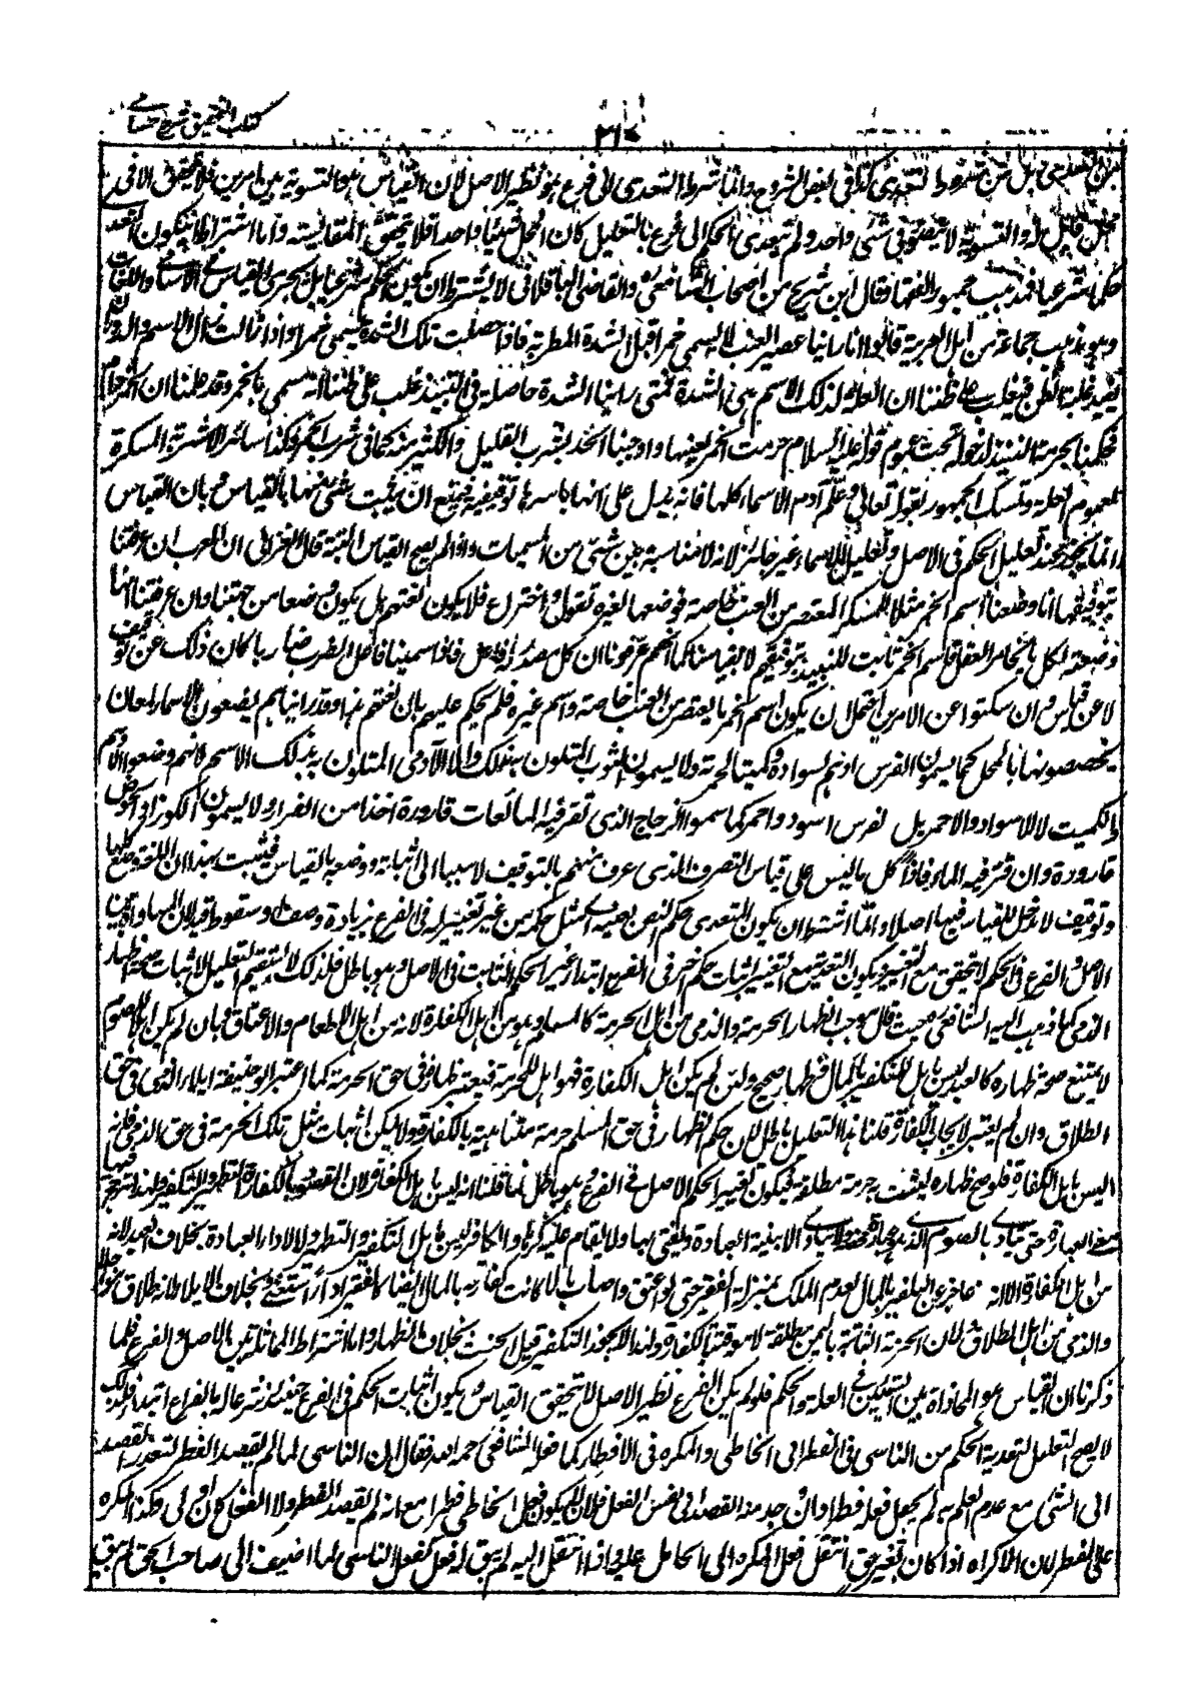 كتاب التحقيق شرح حسامى
شرط التعدى كذا فى بعض الشروح وانما شرط التعدى الى فرع هو نظير الاصل لان القياس هو التسوية بين امرين فلا يتحقق الا فى
محلين قابلين له والتسوية لا يتصور فى شئ واحد ولو لم يتعدى الحكم الى فرع بالتعليل كان المحل شيئا واحدا فلا تتحقق المقايسة واما اشتراط ان يكون المتعدى
حكما شرعيا فمذهب جمهور الفقهاء وقال ابن شريح من اصحاب الشافعى والقاضى الباقلانى لا يشترط ان يكون الحكم شرعيا بل يجرى القياس فى الاسامى واللغات
وهو مذهب جماعة من اهل العربية قالوا انا راينا عصير العنب لا يسمى خمرا قبل الشدة المطربة فاذا حصلت تلك الشدة يسمى خمرا واذا زالت زال الاسم والدوران
يفيد غلبة الظن فيغلب على ظننا ان العلة لذلك الاسم هى الشدة فمتى راينا الشدة حاصلة فى النبيذ غلب على ظننا انه مسمى بالخمر وقد علمنا ان الخمر حرام
فحكمنا بحرمة النبيذ لدخوله تحت عموم قوله عليه السلام حرمت الخمر لعينها واوجبنا الحد بشرب القليل والكثير منه كما فى شرب الخمر وكذا سائر الاشربة المسكرة
لعموم العلة وتمسك الجمهور بقوله تعالى وعلم آدم الاسماء كلها فانه يدل على انها باسرها توقيفية فيمتنع ان يثبت شئ منها بالقياس وبان القياس
انما يجوز عند تعليل الحكم فى الاصل وتعليل الاسماء غير جائز لانه لا مناسبة بين شئ من المسميات واذا لم يصح القياس البتة قال الغزالى ان العرب ان عرفتنا
بتوقيفها انا وضعنا اسم الخمر مثلا للمسكر المعتصر من العنب خاصة فوضعها لغيره تقول واختراع فلا يكون لغتهم بل يكون وضعا من جهتنا وان عرفتنا انها
وضعته لكل ما يخامر العقل فاسم الخمر ثابت للنبيذ بتوقيفهم لا بقياسنا كما انهم عرفونا ان كل مصدر له فاعل فاذا سمينا فاعل الضرب ضاربا كان ذلك عن توقيف
لا عن قياس وان سكتوا عن الامرين احتمل ان يكون اسم الخمر ما يعتصر من العنب خاصة واسم غيره فلم يحكم عليهم بان لغتهم هذا وقد رايناهم يضعون الاسم لمعان
يخصصونها بالمحل كما يسمون الفرس ادهم لسواده وكميتا لحمرته ولا يسمون الثوب المتلون بذلك ولا الآدمى المتلون به بذلك الاسم لانهم وضعوا الادهم
والكميت لا للاسود والاحمر بل لفرس اسود واحمر كما سموا الزجاج الذى تقر فيه المائعات قارورة اخذا من القرار ولا يسمون الكوز او الحوض
قارورة وان قر فيه الماء فاذا كل ما ليس على قياس التصرف الذى عرف منهم بالتوقيف لا سبيل الى اثباته ووضعه بالقياس فثبت بهذا ان اللغة وضع كلها
وتوقيف لا مدخل للقياس فيها اصلا وانما اشترط ان يكون المتعدى حكم النص بعينه اى مثل حكمه من غير تغيير له فى الفرع بزيادة وصف او سقوط قيد لان المساواة بين
الاصل والفرع فى الحكم لا تتحقق مع التغيير ويكون التعدية مع التغيير اثبات حكم آخر فى الفرع ابتداء غير الحكم الثابت فى الاصل وهو باطل فلذلك لا يستقيم التعليل لاثبات صحة ظهار
الذمى كما ذهب اليه الشافعى حيث قال موجب الظهار الحرمة والذمى من اهل الحرمة كالمسلم وهو من اهل الكفارة لانه من اهل الاطعام والاعتاق فبان لم يكن اهلا للصوم
لا يمتنع صحة ظهاره كالعبد ليس باهل للتكفير بالمال وظهاره صحيح ولئن لم يكن اهل الكفارة فهو اهل للحرمة فيعتبر ظهاره فى حق الحرمة كما اعتبر ابو حنيفة ايلاء الذمى فى حق
الطلاق وان لم يعتبر لايجاب الكفارة قلنا هذا التعليل باطل لان حكم الظهار فى حق المسلم حرمة متناهية بالكفارة ولا يمكن اثبات مثل تلك الحرمة فى حق الذمى فانه
ليس باهل الكفارة فلو صح ظهاره ليثبت به حرمة مطلقة فيكون تغييرا لحكم الاصل فى الفرع وهو باطل وانما قلنا انه ليس باهل الكفارة لان المقصود بالكفارة التطهير والتكفير ولهذا ترجح فيها
معنى العبادة حتى تتادى بالصوم الذى هو عبادة محضة ولا يتادى الا بنية العبادة ويفتى بها ولا يقام عليه كرها والكافر ليس باهل للتكفير والتطهير ولا لاداء العبادة بخلاف العبد لانه
من اهل الكفارة الا انه عاجز عن التكفير بالمال لعدم الملك بمنزلة الفقير حتى لو اعتق واصاب مالا كانت كفارته بالمال ايضا كالفقير اذا استغنى وبخلاف الايلاء لانه طلاق مؤجل
والذمى من اهل الطلاق لان الحرمة الثابتة باليمين مطلقة لا موقتة بالكفارة ولهذا لا يجوز التكفير قبل الحنث بخلاف الظهار واما اشتراط المماثلة بين الاصل والفرع فلما
ذكرنا ان القياس هو المحاذاة بين الشيئين فى العلة والحكم فلو لم يكن الفرع نظير الاصل لا يتحقق القياس ويكون اثبات الحكم فى الفرع حينئذ شرعا له بالفرع ابتداء فلذلك
لا يصح التعليل لتعدية الحكم من الناسى فى الفطر الى الخاطى والمكره فى الافطار كما فعله الشافعى رحمه الله فقال بان الناسى لما لم يقصد الفطر لتعذر القصد
الى الشئ مع عدم العلم به لم يجعل فعله فطرا وان وجد منه القصد فى نفس الفعل فلان لا يكون فعل الخاطى فطرا مع انه لم يقصد الفطر ولا الفعل كان اولى وكذا المكره
على الفطر لان الاكراه اذا كان بغير حق انتقل فعل المكره الى الحامل عليه واذا انتقل اليه لم يبق له فعل كفعل الناسى لما اضيف الى صاحب الحق لم يبق